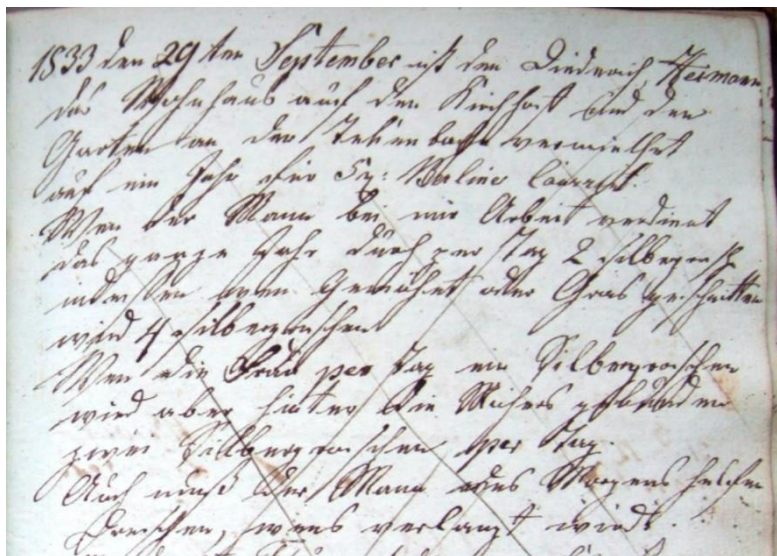 1833 den 29ten September ist den Diedrich Hermann
das Wohnhaus auf den Kirchhof und den
Garten an der vermiethet
auf ein Jahr für Berliner Courant.
Wen der Mann bei mir Arbeit verdient
das ganze Jahr durch per Tag 2 silbergrosch
indessen wen gemähet oder Gras geschnitten
wird 4 silbergroschen
Wen die Frau per Tag ein Silbergroschen
wird aber hinter die Mähers gebunden
zwei Silbergroschen per Tag.
Auch muß der Mann des Morgens helfen
dreschen, wens verlangt wird.